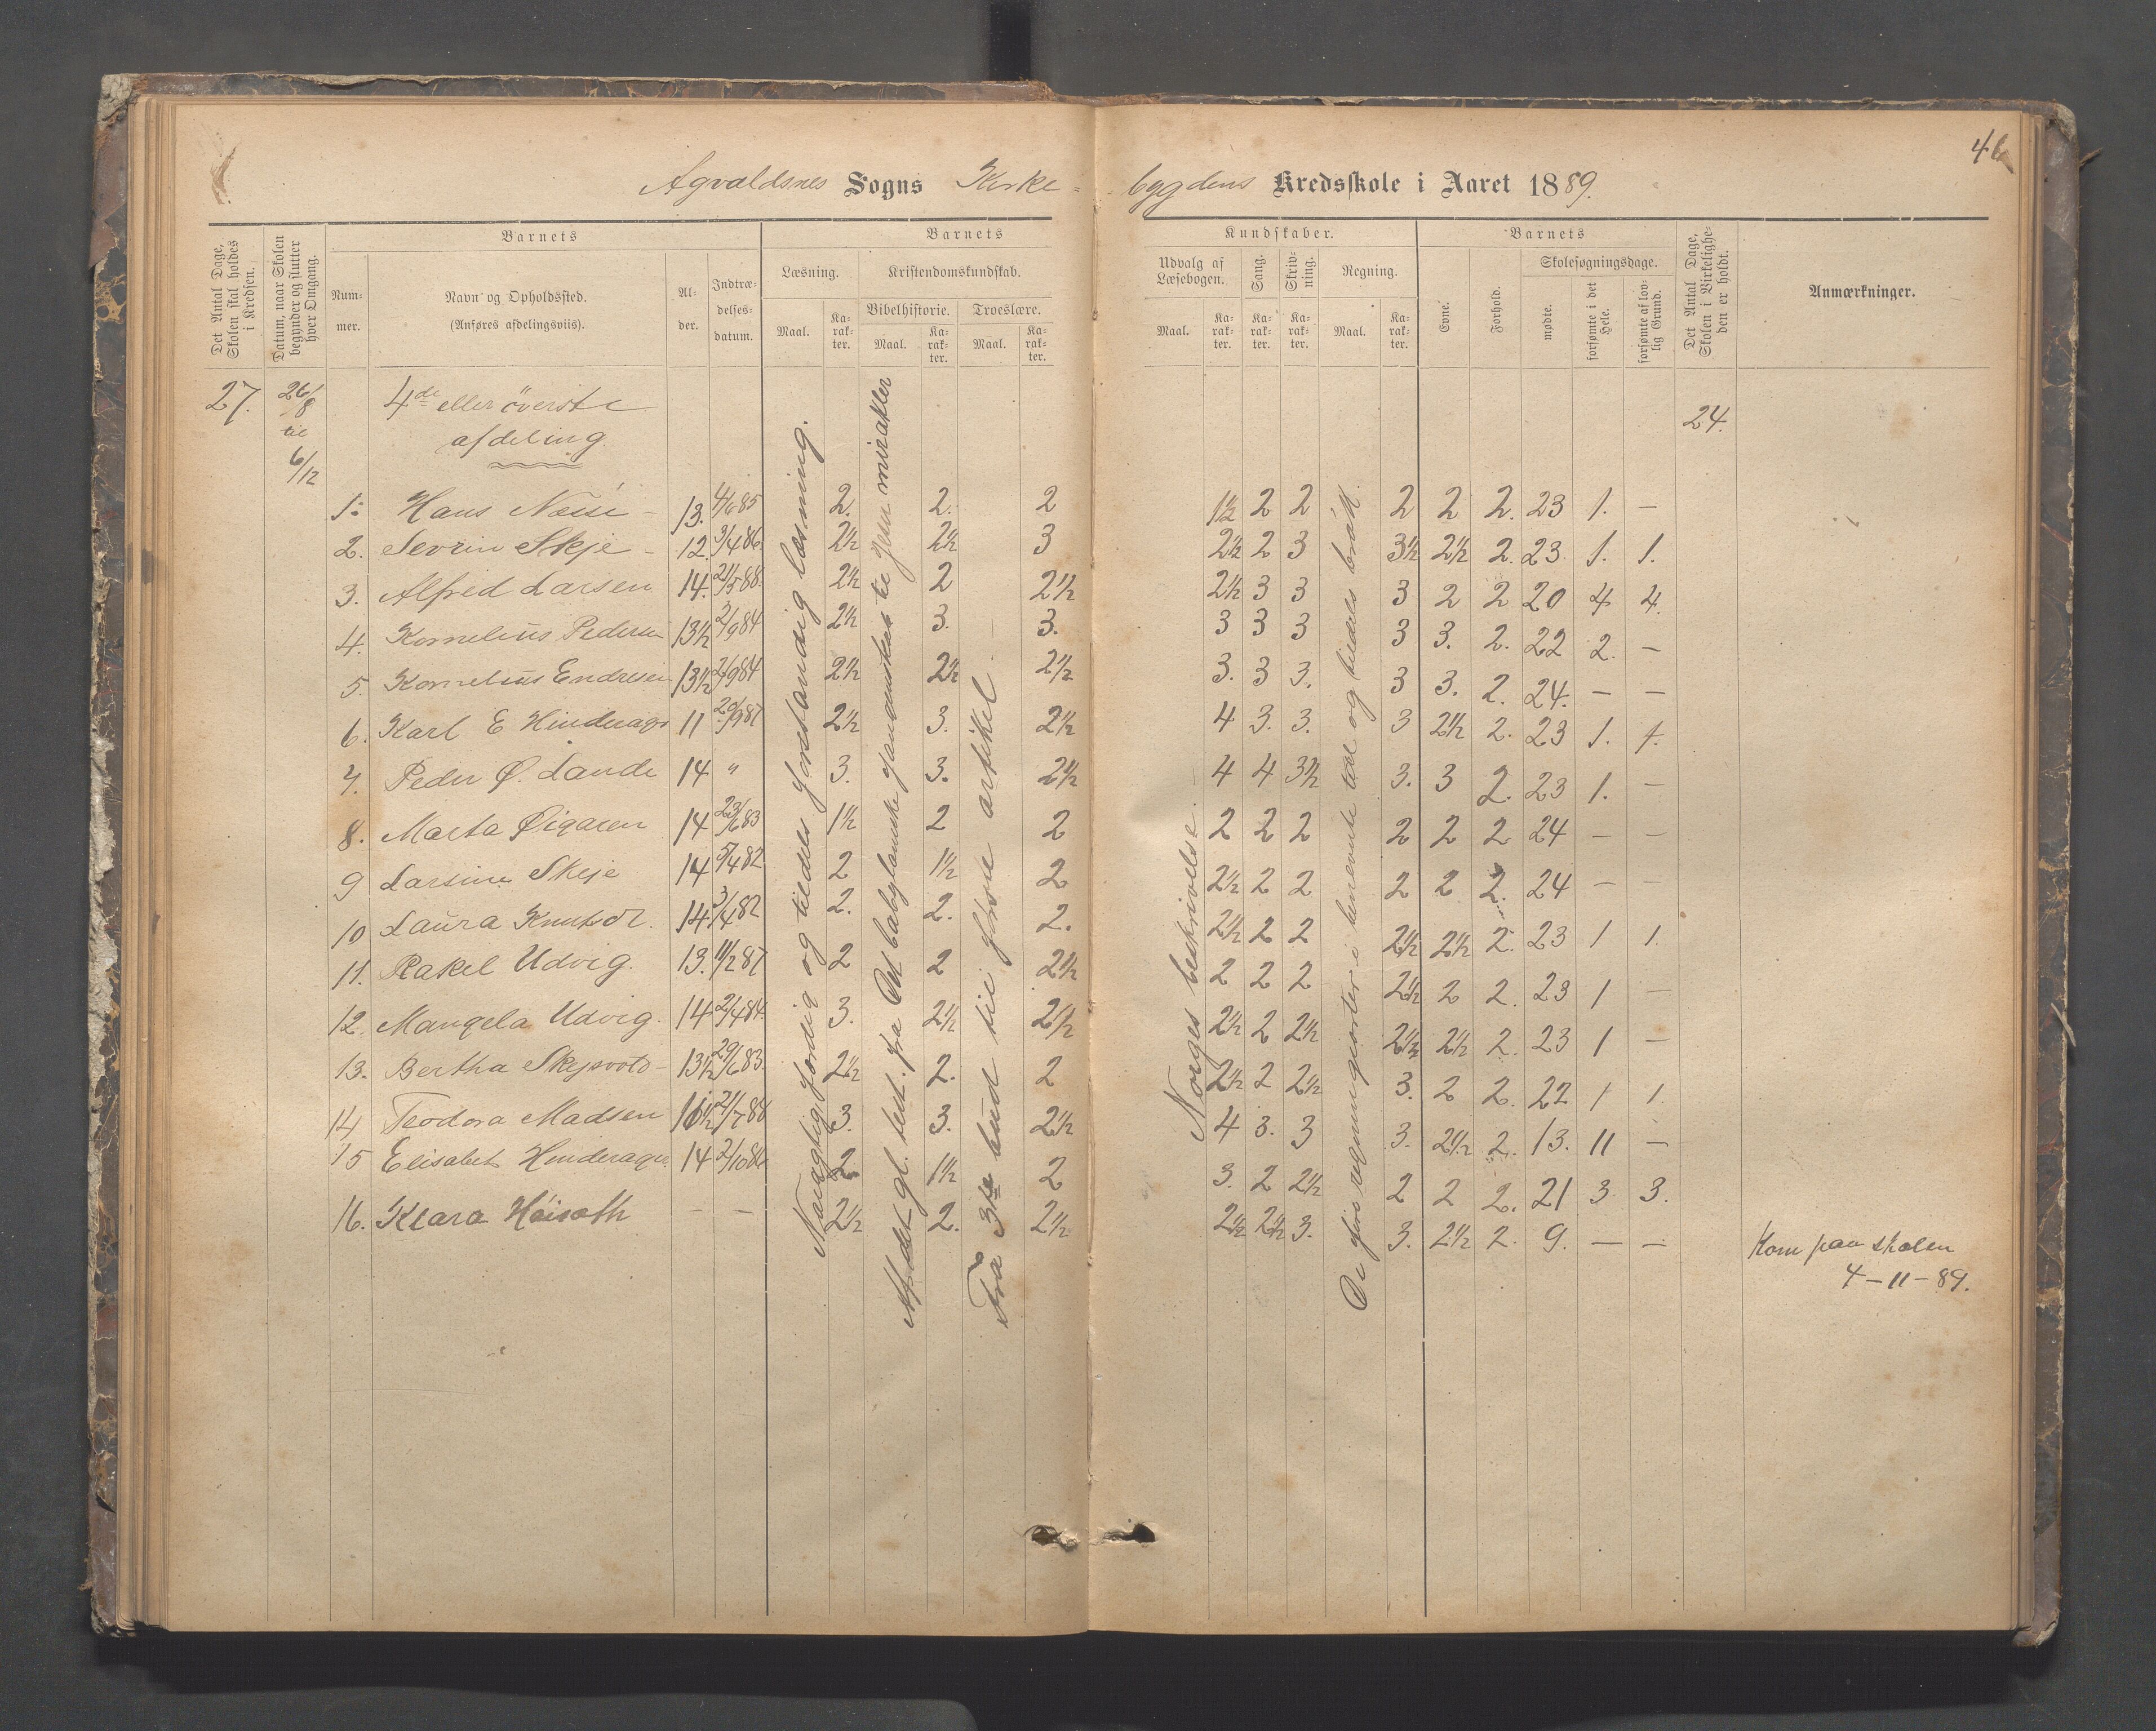 46
Agvaldsnes Sogns Kirke-
bygdens Kredsskole i Aaret 1889.
Det Antal Dage, Skolen skal holdes i Kredsen.
Datum, naar Skolen begynder og slutter hver Omgang.
Barnets
Num-mer.
Navn og Opholdssted.
(Anføres afdelingsviis).
Al-der.
Indtræ-delses-datum.
Barnets
Læsning.
Maal.
Ka-rak-ter.
Kristendomskundskab.
Bibelhistorie.
Maal.
Ka-rak-ter.
Troeslære.
Maal.
Ka-rak-ter.
Kundskaber.
Udvalg af Læsebogen.
Maal.
Ka-rak-ter.
Sang.
Ka-rak-ter.
Skriv-ning.
Ka-rak-ter.
Regning.
Maal.
Ka-rak-ter.
Barnets
Evne.
Forhold.
Skolesøgningsdage.
mødte.
forsømte i det Hele.
forsømte af lov-lig Grund.
Det Antal Dage, Skolen i Virkelighe-den er holdt.
Anmærkninger.
27. 26/8 4de eller överste 24.
til afdeling.
6/12
1. Hans Neise 13. 4/6 85 2. 2. 2 1½ 2 2 2 2 2. 23 1. –
2. Sevrin Skeje 12. 3/4 86. 2½ 2½ 3 2½ 2 3 3½ 2½ 2. 23. 1. 1.
3. Alfred Larsen 14. 21/5 88. 2½ 2 2½ 2½ 3 3 3 2 2 20 4 4.
4. Kornelius Pedersen 13½ 2/9 84 2½ 3. 3. 3 3 3 3 3. 2. 22 2. –
5. Kornelius Endresen 13½ 2/9 84 2½ 2½ 2½ 3. 3 3. 3 3. 2. 24. – –
6. Karl E Hinderager 11 20/9 87 2½ 3. 2½ 4 3. 3. 3 2½ 2. 23 1. 1.
7. Peder Ø. Lande 14 " 3. 3. 2½ 4 4 3½ 3. 3 2. 23 1. –
8. Marta Øigaren 14 23/6 83 1½ 2 2 2 2 2 2 2 2 24 – –
9 Larsine Skeje 14 5/4 82 2 1½ 2 2½ 2 2 2 2 2. 24 – –
10 Laura Knutsdr. 14 3/4 82 2. 2. 2. 2½ 2 2 2½ 2½ 2. 23 1 1.
11. Rakel Udvig. 13. 11/2 87 2 2 2½ 2 2 2 2½ 2 2. 23 1 –
12. Mangela Udvig. 14 2/4 84. 3. 2½ 2½ 2½ 2 2½ 2½ 2½ 2. 23 1 –
13. Bertha Skejsvold 13½ 29/6 83. 2½ 2. 2 2½ 2 2½ 3. 2 2. 22 1 1.
14 Teodora Madsen 11½ 21/7 88 3. 3. 2½ 4 3. 3 3. 2½ 2. 13. 11 –
15 Elisabet Hinderager. 14 2/10 84 2. 1½ 2 3. 2 2½ 2 2 2. 21 3 3.
16. Klara Høisæth – – 2½ 2. 2½ 2½ 2½ 3. 3. 2½ 2. 9. – –
Kom paa skolen
4–11–89.
Nøiagtig færdig og tildels forstandig læsning.
Af det gl. test. fra Det babylonske fangenskab til Jesu mirakler
Fra 3die bud til første artikel
Norges beskrivelse.
De fire regningsarter i benevnte tal og tildels brøk.